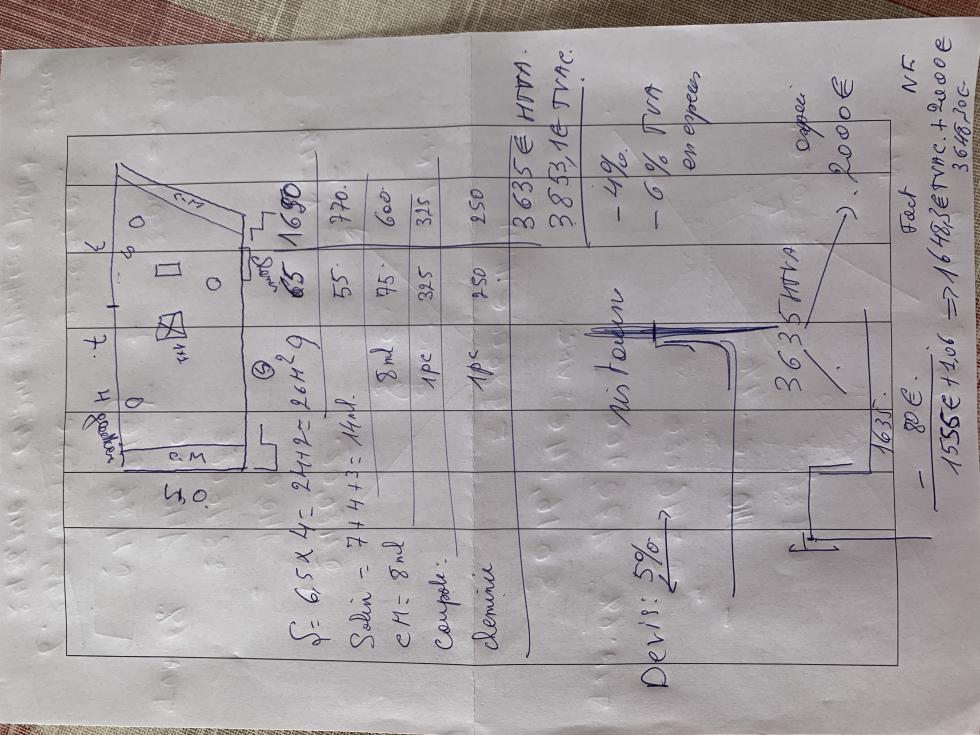 7.
7
S = 6,5 x 4 = 24+2 = 26 M² g 65 1690
Solin = 7+4+3 = 14 ml. 55. 770.
CM = 8 ml 8 ml 75. 600.
coupole : 1 pc 325 325
cheminée 1 pc 250 250
3635 € HTVA.
3853,1 € TVAC.
- 4%.
- 6% TVA
en espèces
Devis : 5%
3635 HTVA
2000 €
1635.
- 80 €.
Fact NF
1555 € + 1,06 => 1648,3 € TVAC. + 2000 €
3648,30 €